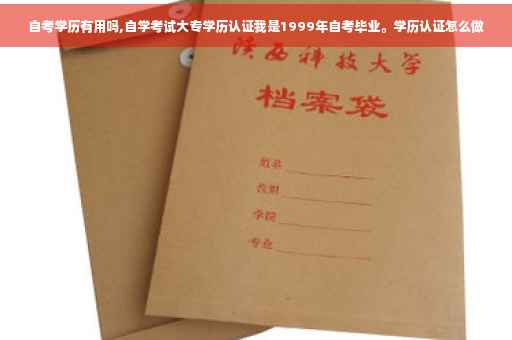 自考学历有用吗,自学考试大专学历认证我是1999年自考毕业。学历认证怎么做
陕西科技大学
档案袋
姓名
学院
专业